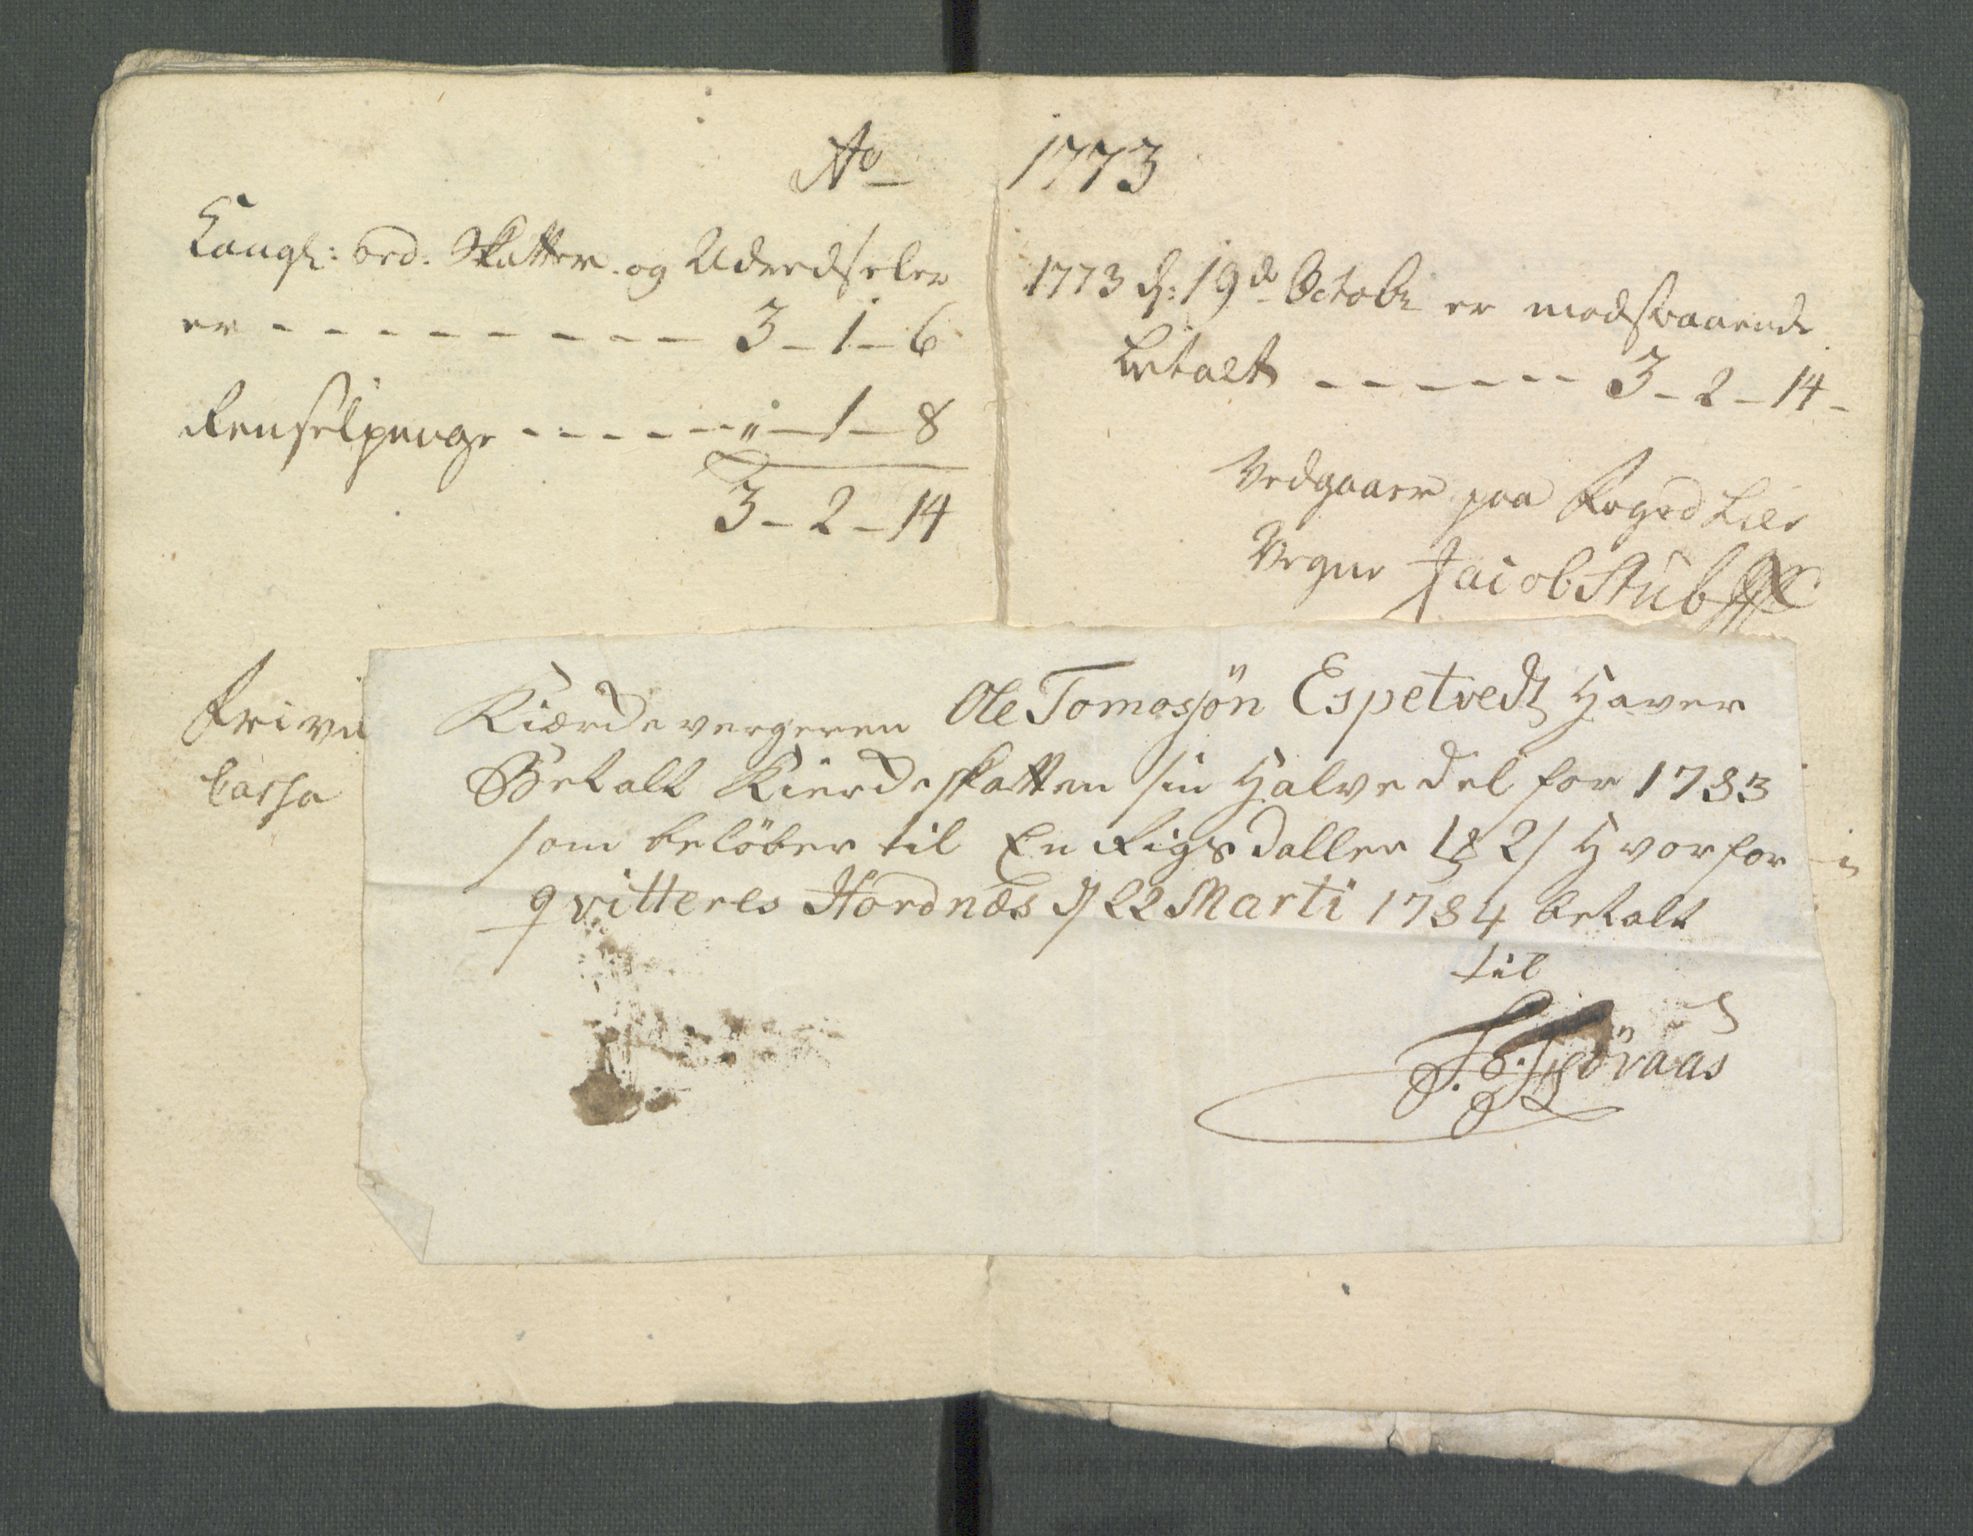 Ao 1773
Kongl: ord. Skatter og Udredseler
er - - - - - - - - - 3 - 1 - 6
Renselpenge - - - - - - " - 1 - 8
3 - 2 - 14
1773 d: 19de Octobr er modsvaarende
betalt - - - - - - 3 - 2 - 14 -
Vedgaaer paa Foged Lies
Vegne Jacob Stub
Kiærdevergeren Ole Tomosjön Espetvedt Haver
Betalt Kierdeskatten sin Halve del for 1783
som beløber til En Rigsdaller 1 2/ Hvorfor
qvitteres Hordnæs d 22 Marti 1784 betalt
til